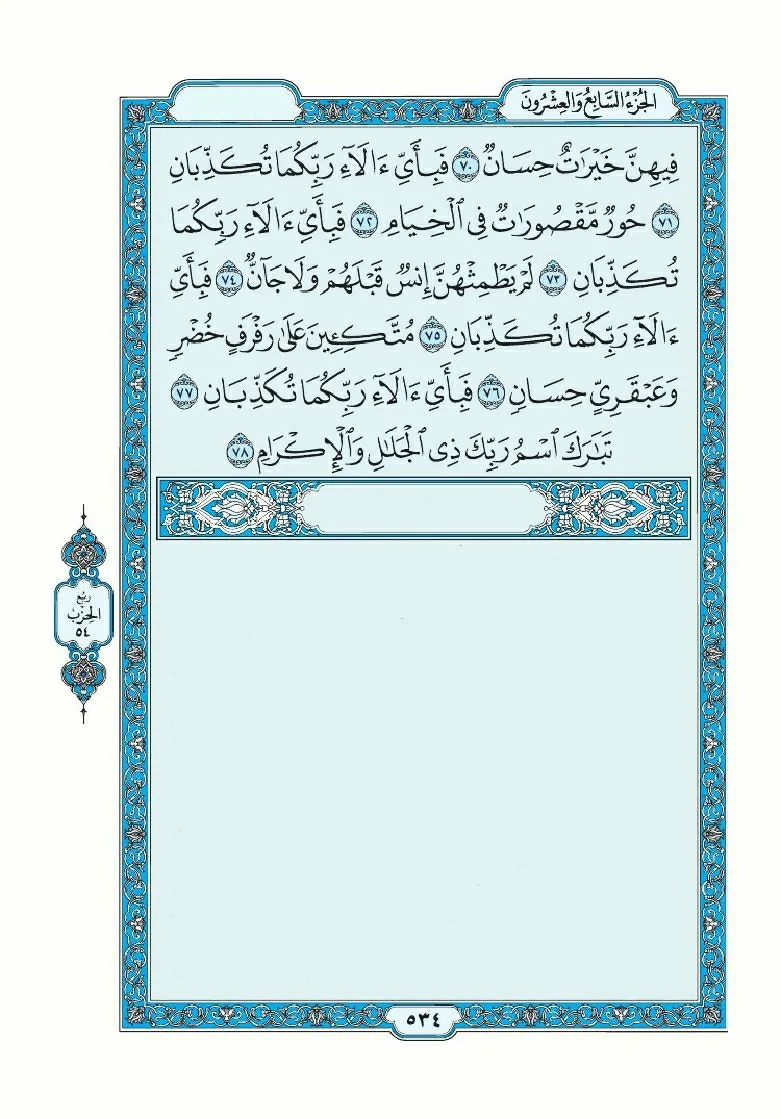 الجُزْءُ السَّابِعُ وَالعِشْرُونَ
فِيهِنَّ خَيْرَٰتٌ حِسَانٌ ٧٠ فَبِأَيِّ ءَالَآءِ رَبِّكُمَا تُكَذِّبَانِ
٧١ حُورٌ مَّقْصُورَٰتٌ فِي ٱلْخِيَامِ ٧٢ فَبِأَيِّ ءَالَآءِ رَبِّكُمَا
تُكَذِّبَانِ ٧٣ لَمْ يَطْمِثْهُنَّ إِنسٌ قَبْلَهُمْ وَلَا جَآنٌّ ٧٤ فَبِأَيِّ
ءَالَآءِ رَبِّكُمَا تُكَذِّبَانِ ٧٥ مُتَّكِـِٔينَ عَلَىٰ رَفْرَفٍ خُضْرٍ
وَعَبْقَرِيٍّ حِسَانٍ ٧٦ فَبِأَيِّ ءَالَآءِ رَبِّكُمَا تُكَذِّبَانِ ٧٧
تَبَٰرَكَ ٱسْمُ رَبِّكَ ذِي ٱلْجَلَٰلِ وَٱلْإِكْرَامِ ٧٨
رُبْع
الحِزْبْ
٥٤
٥٣٤